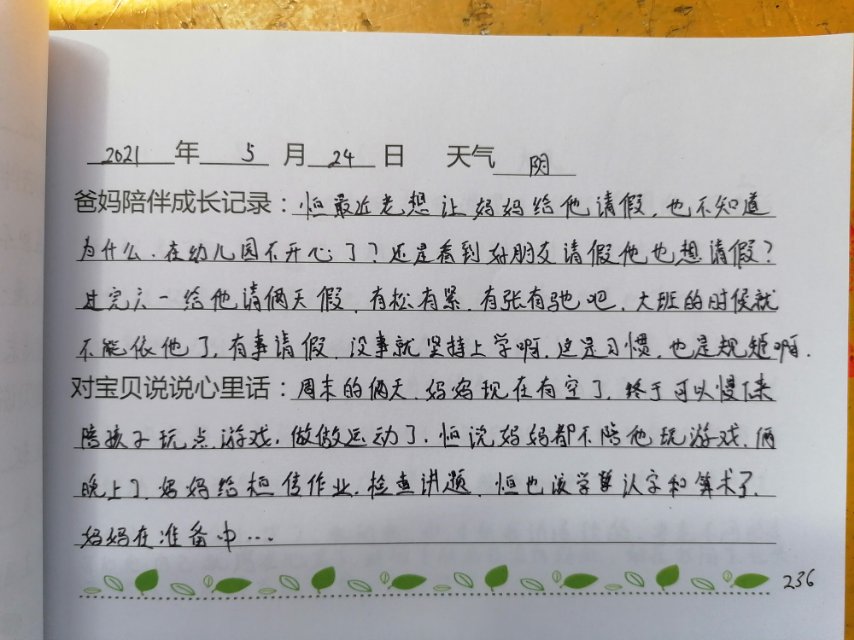 2021 年 5 月 24 日 天气 阴
爸妈陪伴成长记录：恒最近老想让妈妈给他请假，也不知道
为什么．在幼儿园不开心了？还是看到好朋友请假他也想请假？
过完六一给他请俩天假，有松有紧，有张有弛吧．大班的时候就
不能依他了，有事请假，没事就坚持上学啊，这是习惯，也是规矩啊．
对宝贝说说心里话：周末的俩天，妈妈现在有空了，终于可以慢下来
陪孩子玩点游戏，做做运动了．恒说妈妈都不陪他玩游戏，俩
晚上了，妈妈给桓住作业，检查讲题，恒也该学算认字和算术了，
妈妈在准备中…
236